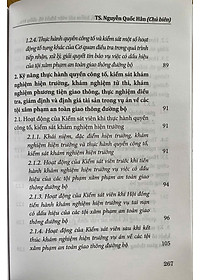 TS. Nguyễn Quốc Hân (Chủ biên)
1.2.4. Thực hành quyền công tố và kiểm sát một số hoạt
động tố tụng khác của Cơ quan điều tra trong quá trình
tiếp nhận, xử lý, giải quyết tin báo vụ việc có dấu hiệu
của các tội xâm phạm an toàn giao thông đường bộ
89
2. Kỹ năng thực hành quyền công tố, kiểm sát khám
nghiệm hiện trường, khám nghiệm tử thi, khám
nghiệm phương tiện giao thông, thực nghiệm điều
tra, giám định và định giá tài sản trong vụ án về các
tội xâm phạm an toàn giao thông đường bộ
91
2.1. Hoạt động của Kiểm sát viên khi thực hành quyền
công tố, kiểm sát khám nghiệm hiện trường
91
2.1.1. Khái niệm, đặc điểm hiện trường, khám
nghiệm hiện trường và nguyên tắc thực hành
quyền công tố, kiểm sát khám nghiệm hiện trường
91
2.1.2. Hoạt động của Kiểm sát viên trước khi tiến
hành khám nghiệm hiện trường vụ việc có dấu hiệu
của các tội xâm phạm an toàn giao thông đường bộ
94
2.1.3. Hoạt động của Kiểm sát viên khi Hội đồng
tiến hành khám nghiệm hiện trường vụ tai nạn
có dấu hiệu của các tội xâm phạm an toàn giao
thông đường bộ
96
2.1.4. Hoạt động của Kiểm sát viên sau khi kết
thúc khám nghiệm hiện trường vụ án về các tội
xâm phạm an toàn giao thông đường bộ
105
267